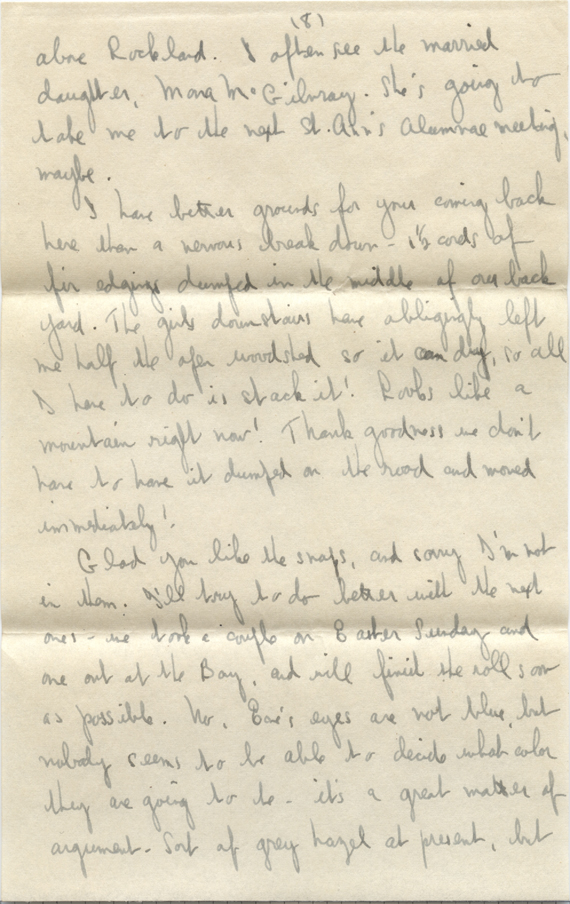 (8)
above Rockland. I often see the married
daughter, Mona McGilvray. She's going to
take me to the next St. Ann's Alumnae meeting,
maybe.
I have better grounds for your coming back
here than a nervous break down - 1½ cords of
fir edgings dumped in the middle of our back
yard. The girls downstairs have obligingly left
me half the open woodshed so it can dry, so all
I have to do is stack it! Looks like a
mountain right now! Thank goodness we don't
have to have it dumped on the road and moved
immediately!
Glad you like the snaps, and sorry I'm not
in them. I'll try to do better with the next
ones - we took a couple on Easter Sunday and
one out at the Bay, and will finish the roll soon
as possible. No, eyes are not blue, but
nobody seems to be able to decide what color
they are going to be - it's a great matter of
argument - Sort of grey hazel at present, but